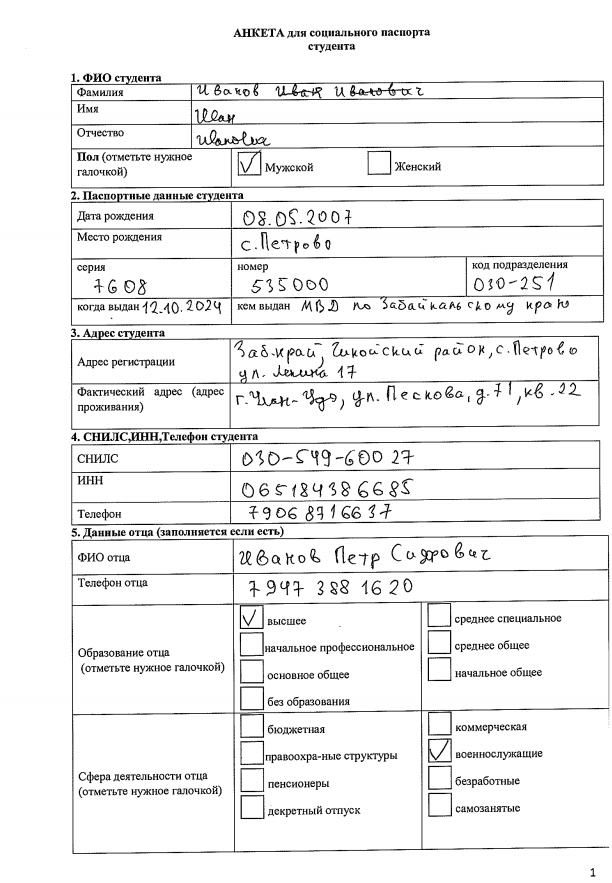 АНКЕТА для социального паспорта
студента
1. ФИО студента
Фамилия Иванов Иван Иванович
Имя Иван
Отчество Иванович
Пол (отметьте нужное
галочкой) Мужской Женский
2. Паспортные данные студента
Дата рождения 08.05.2007
Место рождения с.Петрово
серия номер код подразделения
7608 535000 030-251
когда выдан 12.10.2024 кем выдан МВД по Забайкальскому краю
3. Адрес студента
Адрес регистрации Заб.край, Чикойский район, с. Петрово
ул. Ленина 17
Фактический адрес (адрес
проживания) г. Улан-Удэ, ул. Пескова, д.71, кв.22
4. СНИЛС,ИНН,Телефон студента
СНИЛС 030-549-600 27
ИНН 065184386685
Телефон 7906 8716637
5. Данные отца (заполняется если есть)
ФИО отца Иванов Петр Сидрович
Телефон отца 7947 388 1620
Образование отца
(отметьте нужное галочкой)
высшее среднее специальное
начальное профессиональное среднее общее
основное общее начальное общее
без образования
Сфера деятельности отца
(отметьте нужное галочкой)
бюджетная коммерческая
правоохра-ные структуры военнослужащие
пенсионеры безработные
декретный отпуск самозанятые
1